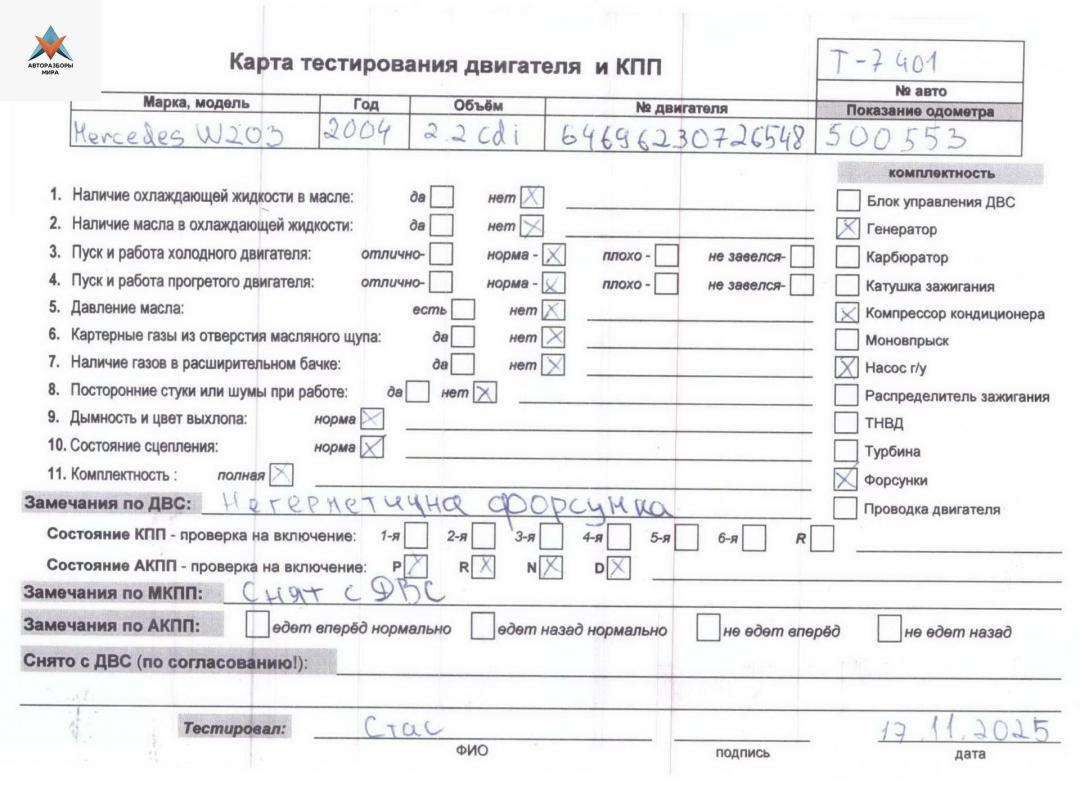 АВТОРАЗБОРЫ
МИРА
Карта тестирования двигателя и КПП
Т-7401
№ авто
Марка, модель Год Объём № двигателя Показание одометра
Mercedes W203 2004 2.2 cdi 64696230726548 500553
комплектность
1. Наличие охлаждающей жидкости в масле: да нет Блок управления ДВС
2. Наличие масла в охлаждающей жидкости: да нет Генератор
3. Пуск и работа холодного двигателя: отлично- норма - плохо - не завелся- Карбюратор
4. Пуск и работа прогретого двигателя: отлично- норма - плохо - не завелся- Катушка зажигания
5. Давление масла: есть нет Компрессор кондиционера
6. Картерные газы из отверстия масляного щупа: да нет Моновпрыск
7. Наличие газов в расширительном бачке: да нет Насос г/у
8. Посторонние стуки или шумы при работе: да нет Распределитель зажигания
9. Дымность и цвет выхлопа: норма ТНВД
10. Состояние сцепления: норма Турбина
11. Комплектность : полная Форсунки
Замечания по ДВС: Негерметична форсунка Проводка двигателя
Состояние КПП - проверка на включение: 1-я 2-я 3-я 4-я 5-я 6-я R
Состояние АКПП - проверка на включение: P R N D
Замечания по МКПП: Снят с ДВС
Замечания по АКПП: едет вперёд нормально едет назад нормально не едет вперёд не едет назад
Снято с ДВС (по согласованию!):
Тестировал: Стас 17.11.2025
ФИО подпись дата